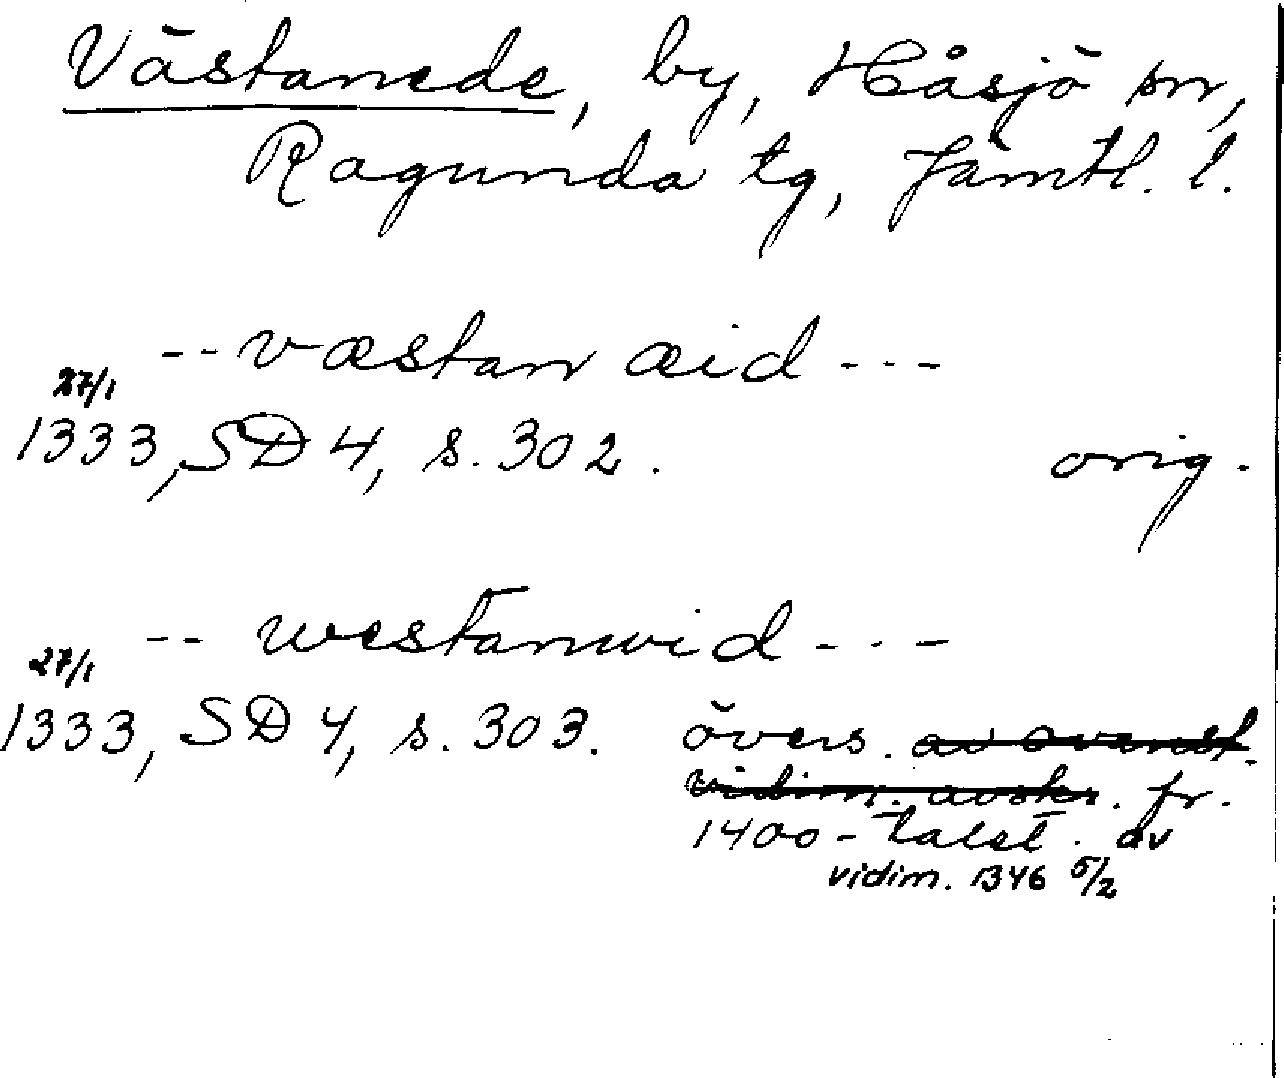 Västanede, by, Håsjö sn,
Ragunda tg, Jämtl. l.
-- væstan æid ---
27/1
1333, SD 4, s. 302. orig.
-- westanwid ---
27/1
1333, SD 4, s. 303. övers. av ovanst.
vidim. avskr. fr.
1400-talet. av
vidim. 1346 5/2